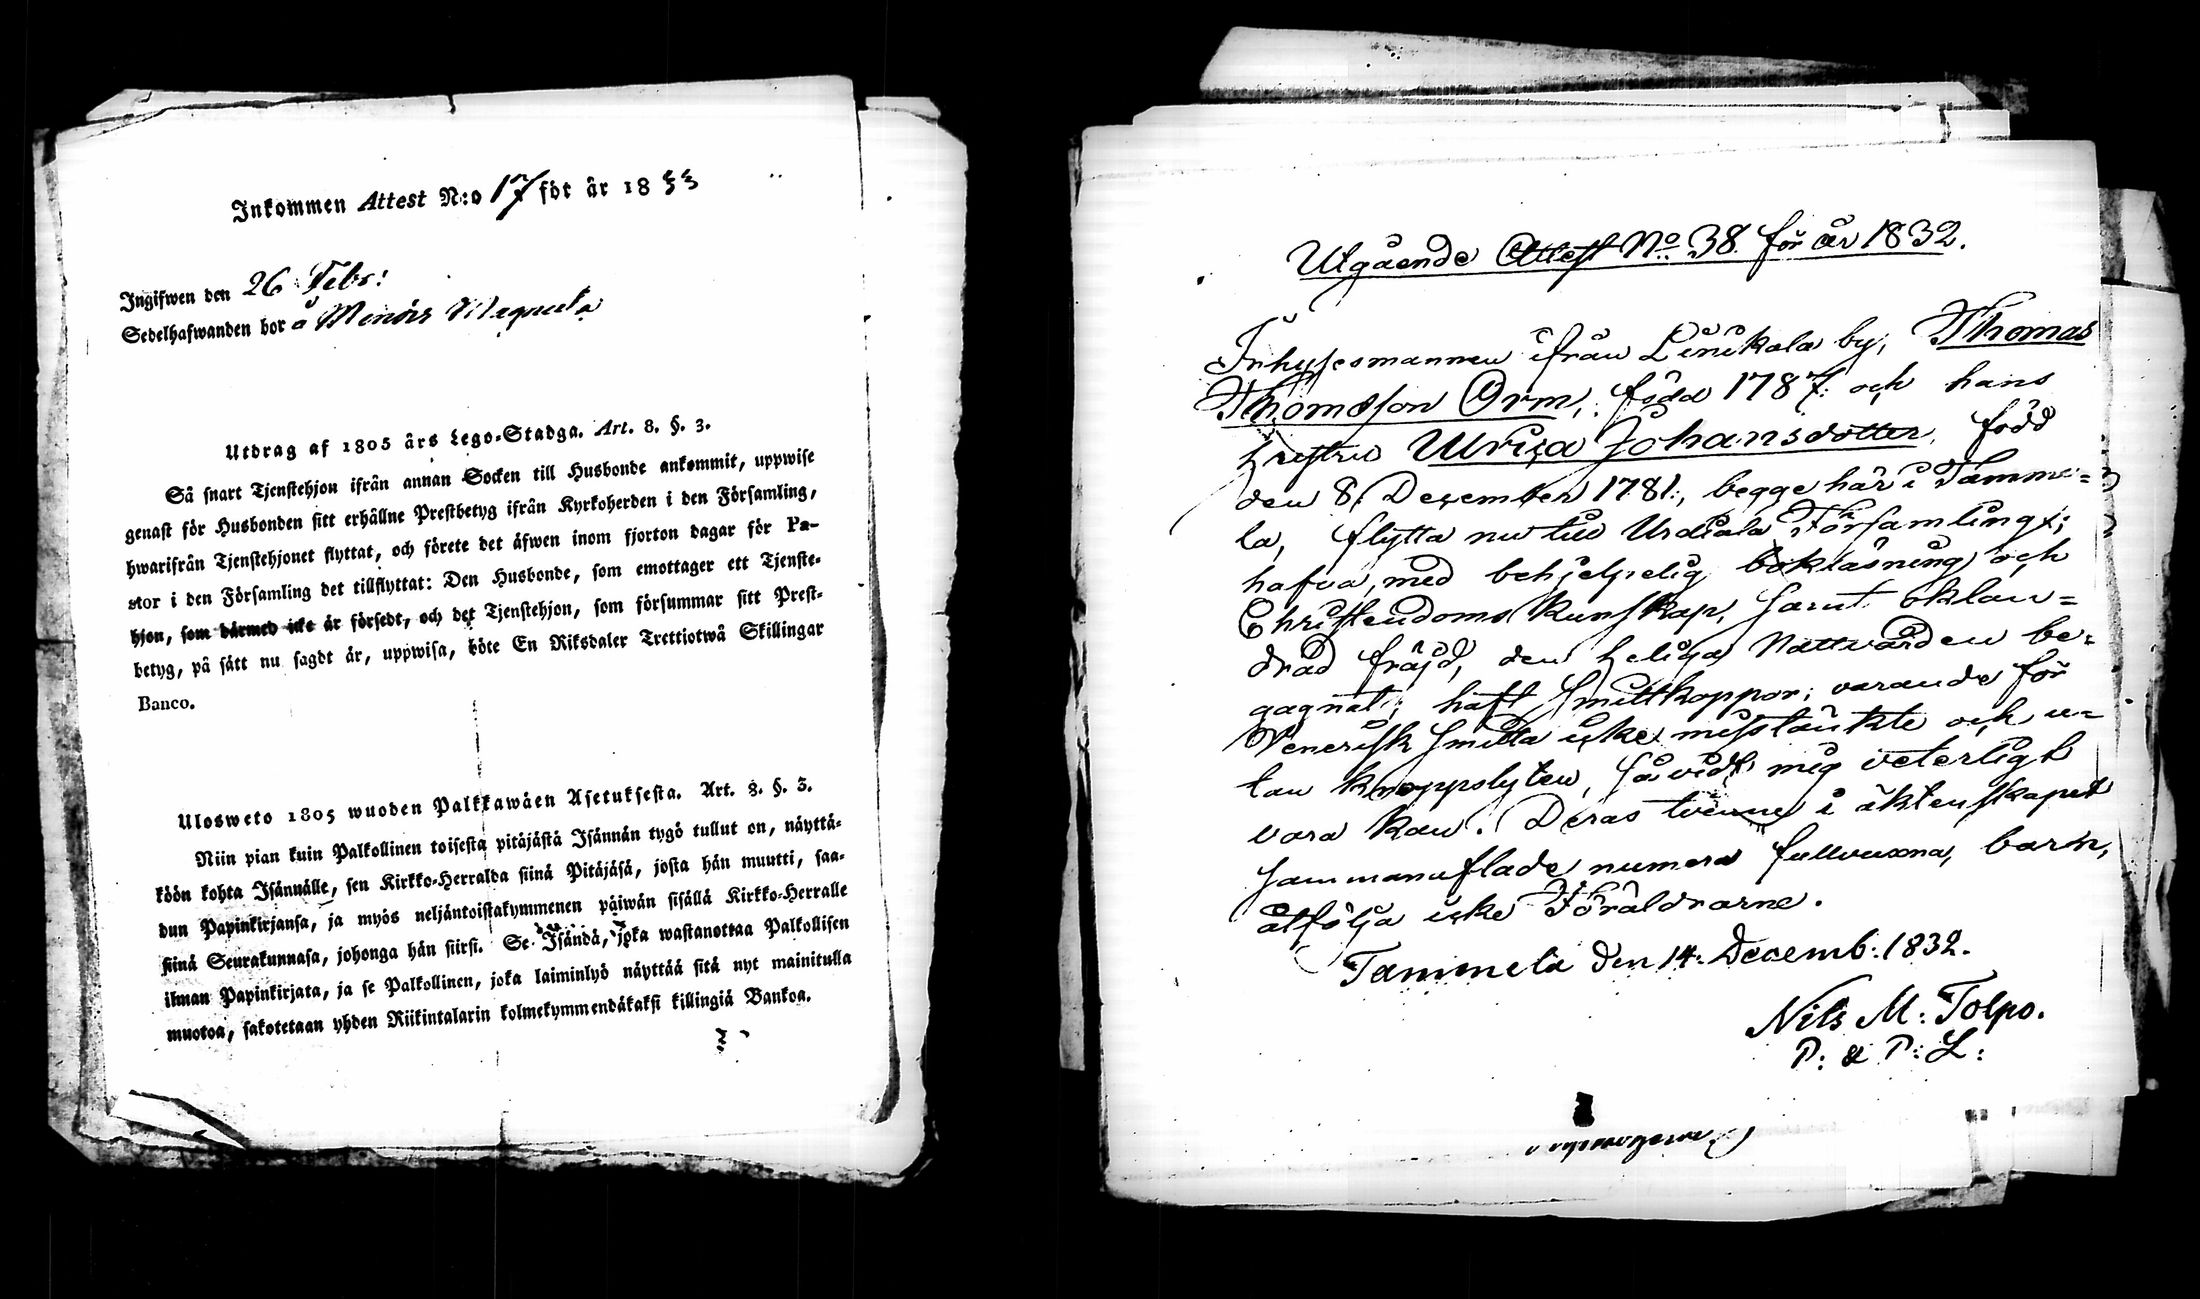 Inkommen Attest N:o 17 för år 1833
Ingifwen den 26 Febr:
Sedelhafwanden bor å
Utdrag af 1805 års Lego-Stadga. Art. 8. §. 3.
Så snart Tjenstehjon ifrån annan Socken till Husbonde ankommit, uppwise
genast för Husbonden sitt erhållne Prestbetyg ifrån Kyrkoherden i den Församling,
hwarifrån Tjenstehjonet flyttat, och förete det äfwen inom fjorton dagar för Pa-
stor i den Församling det tillflyttat: Den Husbonde, som emottager ett Tjenste-
hjon, som därmed icke är försedt, och det Tjenstehjon, som försummar sitt Prest-
betyg, på sätt nu sagdt är, uppwisa, böte En Riksdaler Trettiotwå Skillingar
Banco.
Ulosweto 1805 wuoden Palkkawäen Asetuksesta. Art. 8. §. 3.
Niin pian kuin Palkollinen toisesta pitäjästä Isännän tygö tullut on, näyttä-
köön kohta Isännälle, sen Kirkko-Herralda siinä Pitäjäsä, josta hän muutti, saa-
dun Papinkirjansa, ja myös neljäntoistakymmenen päiwän sisällä Kirkko-Herralle
siinä Seurakunnasa, johonga hän siirsi. Se Isändä, joka wastanottaa Palkollisen
ilman Papinkirjata, ja se Palkollinen, joka laiminlyö näyttää sitä nyt mainitulla
muotoa, sakotetaan yhden Riikintalarin kolmekymmendäkaksi killingiä Bankoa.
Utgående Attest No: 38. för år 1832.
Inhysesmannen ifrån Linikala by, Thomas
Thomsson Orm, född 1787: och hans
hustru Ulrica Johansdotter, född
den 8. December 1781:, begge här i Tamme=
la, flytta nu till Urdiala Församling;
hafva, med behjelpelig bokläsning och
Christendoms kunskap, samt oklan=
drad fräjd, den heliga Nattvarden be=
gagnat; haft Smittkoppor; varande för
Venerisk smitta icke misstänkte och u=
tan kroppslyten, så vidt mig veterligt
vara kan. Deras tvenne i äktenskapet
sammanaflade numera fullvuxna, barn,
åtfölja icke Föräldrarne.
Tammela den 14. Decemb: 1832.
Nils M: Tolpo.
P: & P: L: